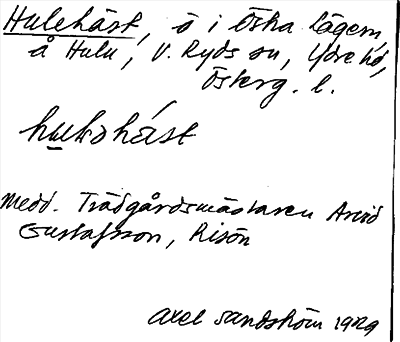 Hulehäst, ö i Östra Lägern,
å Hulu, V. Ryds sn, Ydre hd,
Österg. l.
hulɘhást
Medd. Trädgårdsmästaren Arvid
Gustafsson, Risön
Axel Sandström 1929